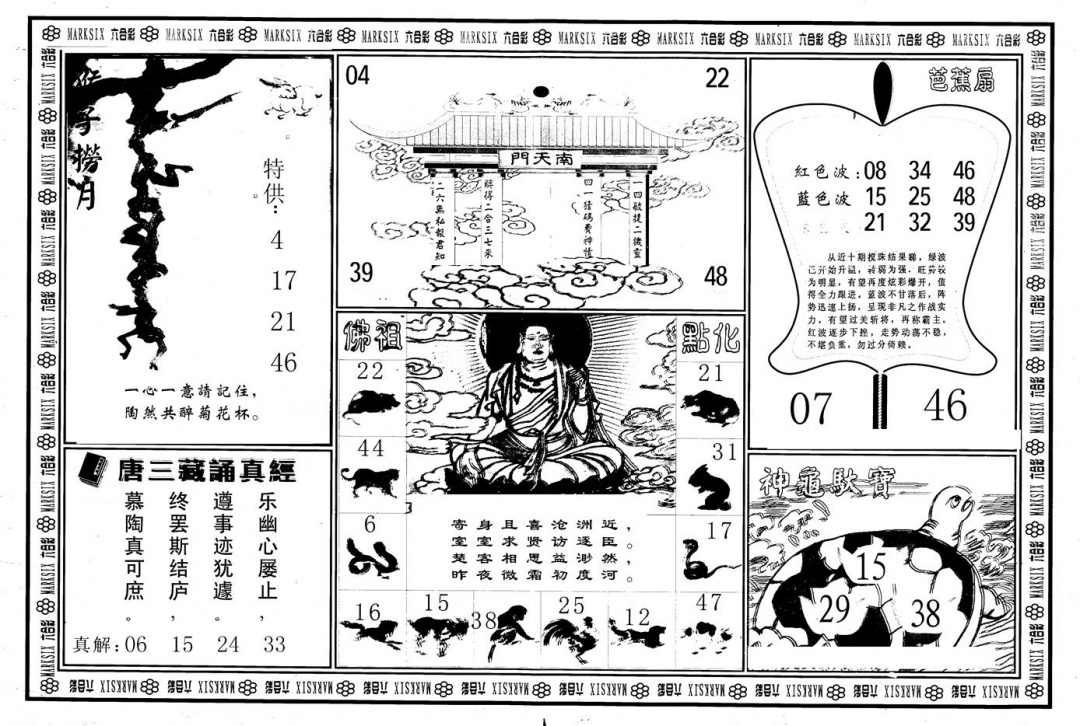 MARKSIX 六合彩 MARKSIX 六合彩 MARKSIX 六合彩 MARKSIX 六合彩 MARKSIX 六合彩 MARKSIX 六合彩 MARKSIX 六合彩 MARKSIX 六合彩 MARKSIX 六合彩 MARKSIX 六合彩
猴子撈月
特供：
4
17
21
46
一心一意請記住，
陶然共醉菊花杯。
唐三藏誦真經
乐幽心屡止，
遵事迹犹遽。
终罢斯结庐，
慕陶真可庶。
真解：06 15 24 33
04 22
南天門
一四敏捷二機靈
四一猜碼費神情
將得二合三七來
二六無私報君知
39 48
佛祖 點化
22 21
44 31
6 17
寄身且喜沧洲近，
室室求贤访逐臣。
楚客相思益渺然
昨夜微霜初度河。
16 15 38 25 12 47
芭蕉扇
紅色波：08 34 46
藍色波 15 25 48
21 32 39
从近十期搅珠结果睇，绿波
已开始升温，转弱为强，旺势较
为明显，有望再度炫彩爆开，值
得全力跟进。蓝波不甘落后，阵
势迅速上扬，呈现非凡之作战实
力，有望过关斩将，再称霸主。
红波逐步下挫，走势动荡不稳，
不堪负重，勿过分倚赖。
07 46
神龜馱寶
15
29 38